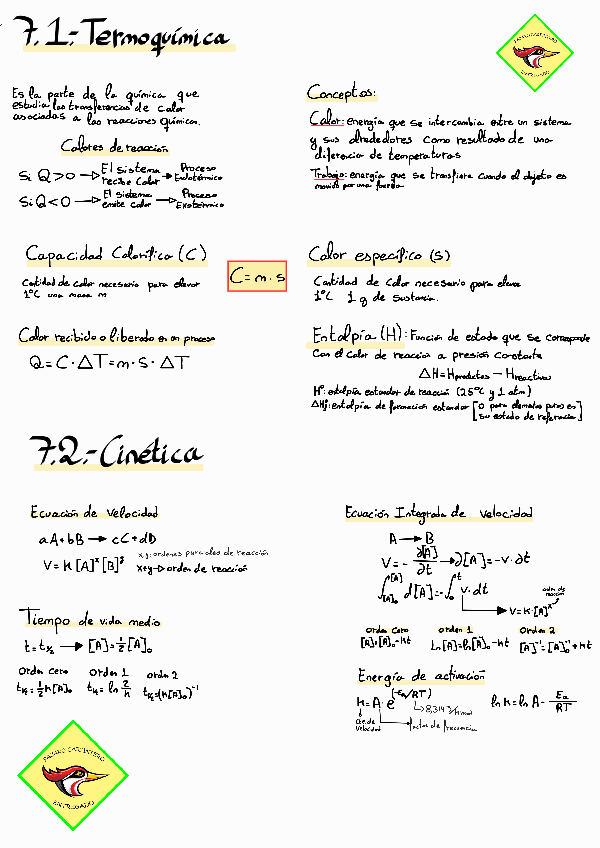 7.1.- Termoquímica
Es la parte de la química que
estudia las transferencias de calor
asociadas a las reacciones químicas.
Calores de reacción
Si Q>0 → El sistema recibe calor → Proceso Endotérmico
Si Q<0 → El sistema emite calor → Proceso Exotérmico
Conceptos:
Calor: energía que se intercambia entre un sistema
y sus alrededores como resultado de una
diferencia de temperaturas
Trabajo: energía que se transfiere cuando el objeto es
movido por una fuerza
Capacidad Calorífica (C)
Cantidad de calor necesario para elevar
1°C una masa m
C = m · s
Calor específico (s)
Cantidad de calor necesario para elevar
1°C 1 g de sustancia.
Calor recibido o liberado en un proceso
Q = C · ΔT = m · s · ΔT
Entalpía (H): Función de estado que se corresponde
con el calor de reacción a presión constante
ΔH = Hproductos − Hreactivos
H°: entalpía estandar de reacción (25°C y 1 atm)
ΔHf: entalpía de formación estandar [0 para elementos puros en
su estado de referencia]
7.2.- Cinética
Ecuación de Velocidad
aA + bB → cC + dD
V = K [A]ˣ [B]ʸ
x,y: ordenes parciales de reacción
x+y → orden de reacción
Tiempo de vida medio
t = t½ → [A] = ½ [A]₀
Orden cero
t½ = ½ K [A]₀
Orden 1
t½ = ln 2/K
orden 2
t½ = (K[A]₀)⁻¹
Ecuación Integrada de velocidad
A → B
V = − ∂[A]/∂t → ∂[A] = −v · ∂t
∫[A]₀^[A] d[A] = −∫₀^t v · dt
V = K · [A]ˣ
orden de reacción
Orden cero
[A] = [A]₀ − Kt
Orden 1
Ln[A] = ln[A]₀ − Kt
Orden 2
[A]⁻¹ = [A]₀⁻¹ + Kt
Energía de activación
K = A · e^(−Ea/RT)
8,314 J/K mol
cte de velocidad
factor de frecuencia
ln K = ln A − Ea/RT